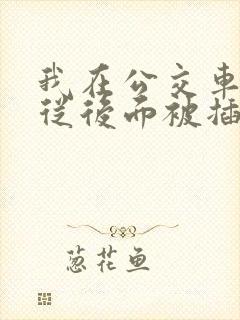 我在公交車
從後面被插
葱花鱼